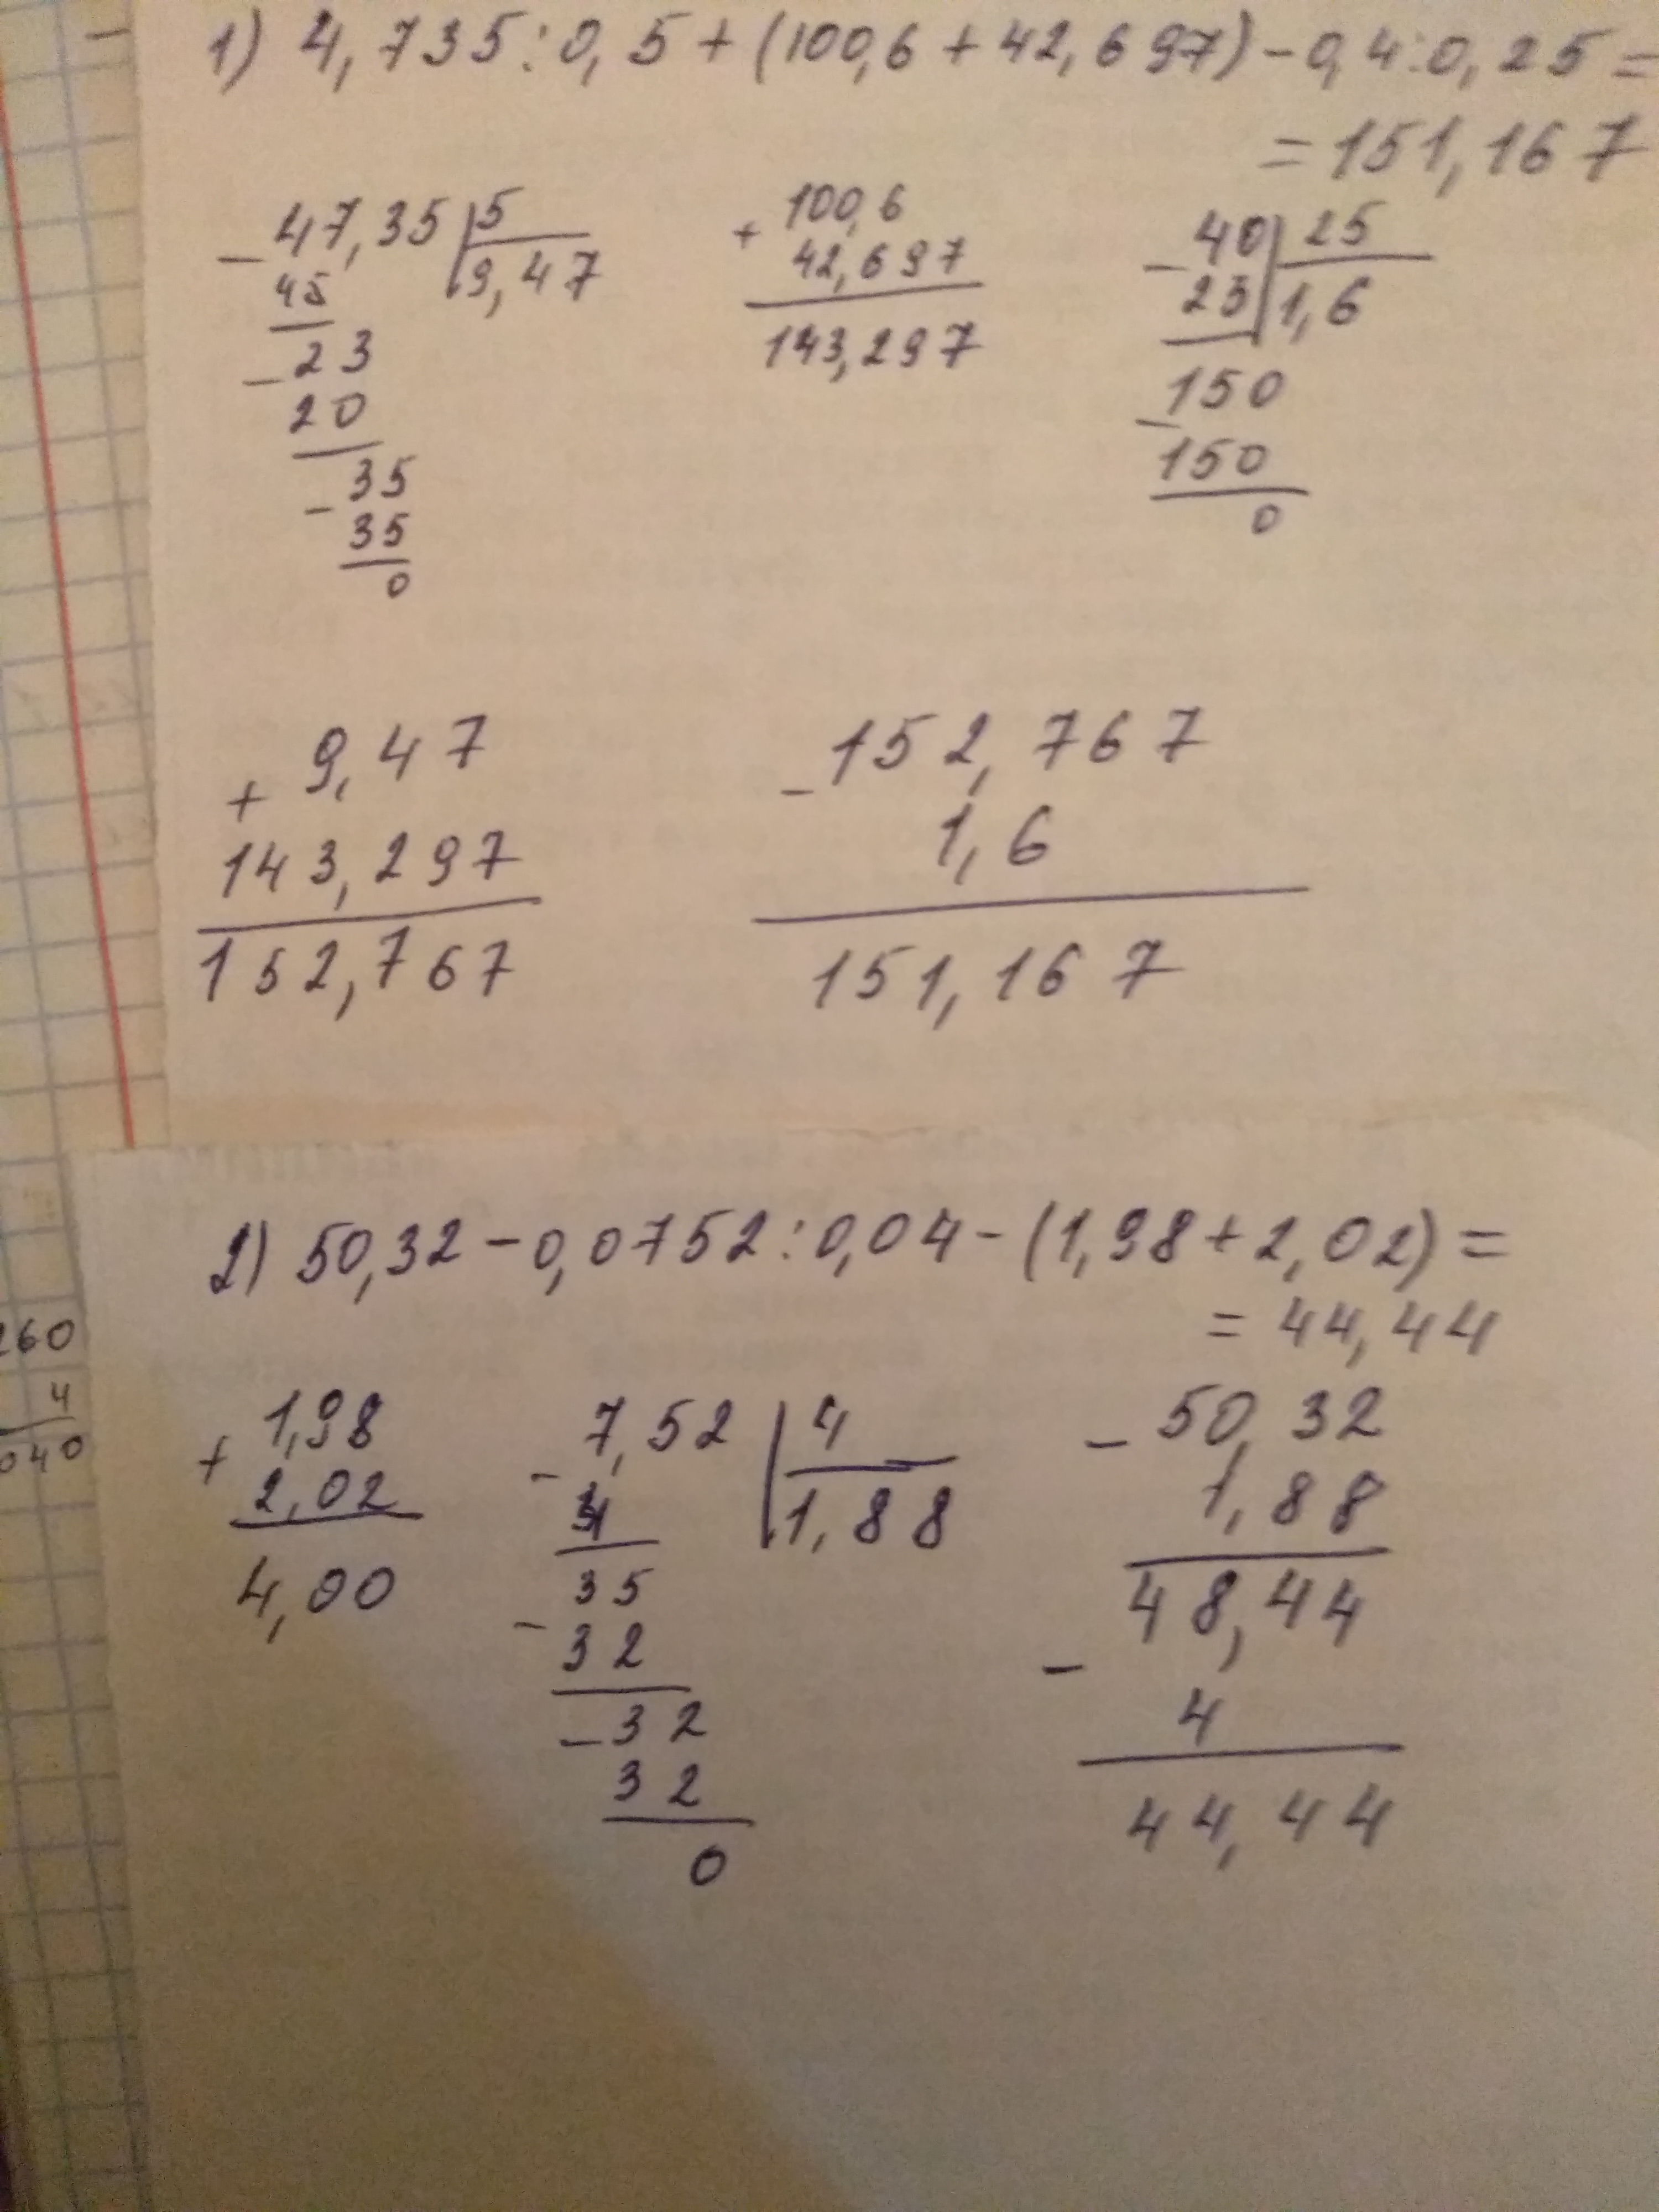 1) 4,735:0,5+(100,6+42,697)-0,4:0,25=
=151,167
- 47,35 | 5
45 | 9,47
- 23
20
- 35
35
0
+ 100,6
42,697
143,297
- 40 | 25
25 | 1,6
- 150
150
0
+ 9,47
143,297
152,767
- 152,767
1,6
151,167
2) 50,32-0,0752:0,04-(1,98+2,02)=
=44,44
+ 1,98
2,02
4,00
- 7,52 | 4
4 | 1,88
- 35
32
- 32
32
0
- 50,32
1,88
48,44
- 4
44,44
260
4
040